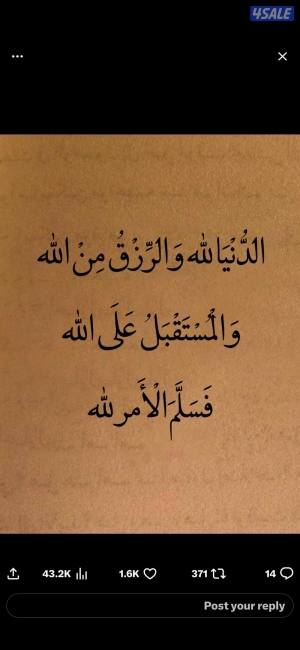 4SALE
الدُّنْيَا لله وَالرِّزْقُ مِنْ الله
وَالْمُسْتَقْبَلُ عَلَى الله
فَسَلَّمَ الْأَمر لله
43.2K
1.6K
371
14
Post your reply